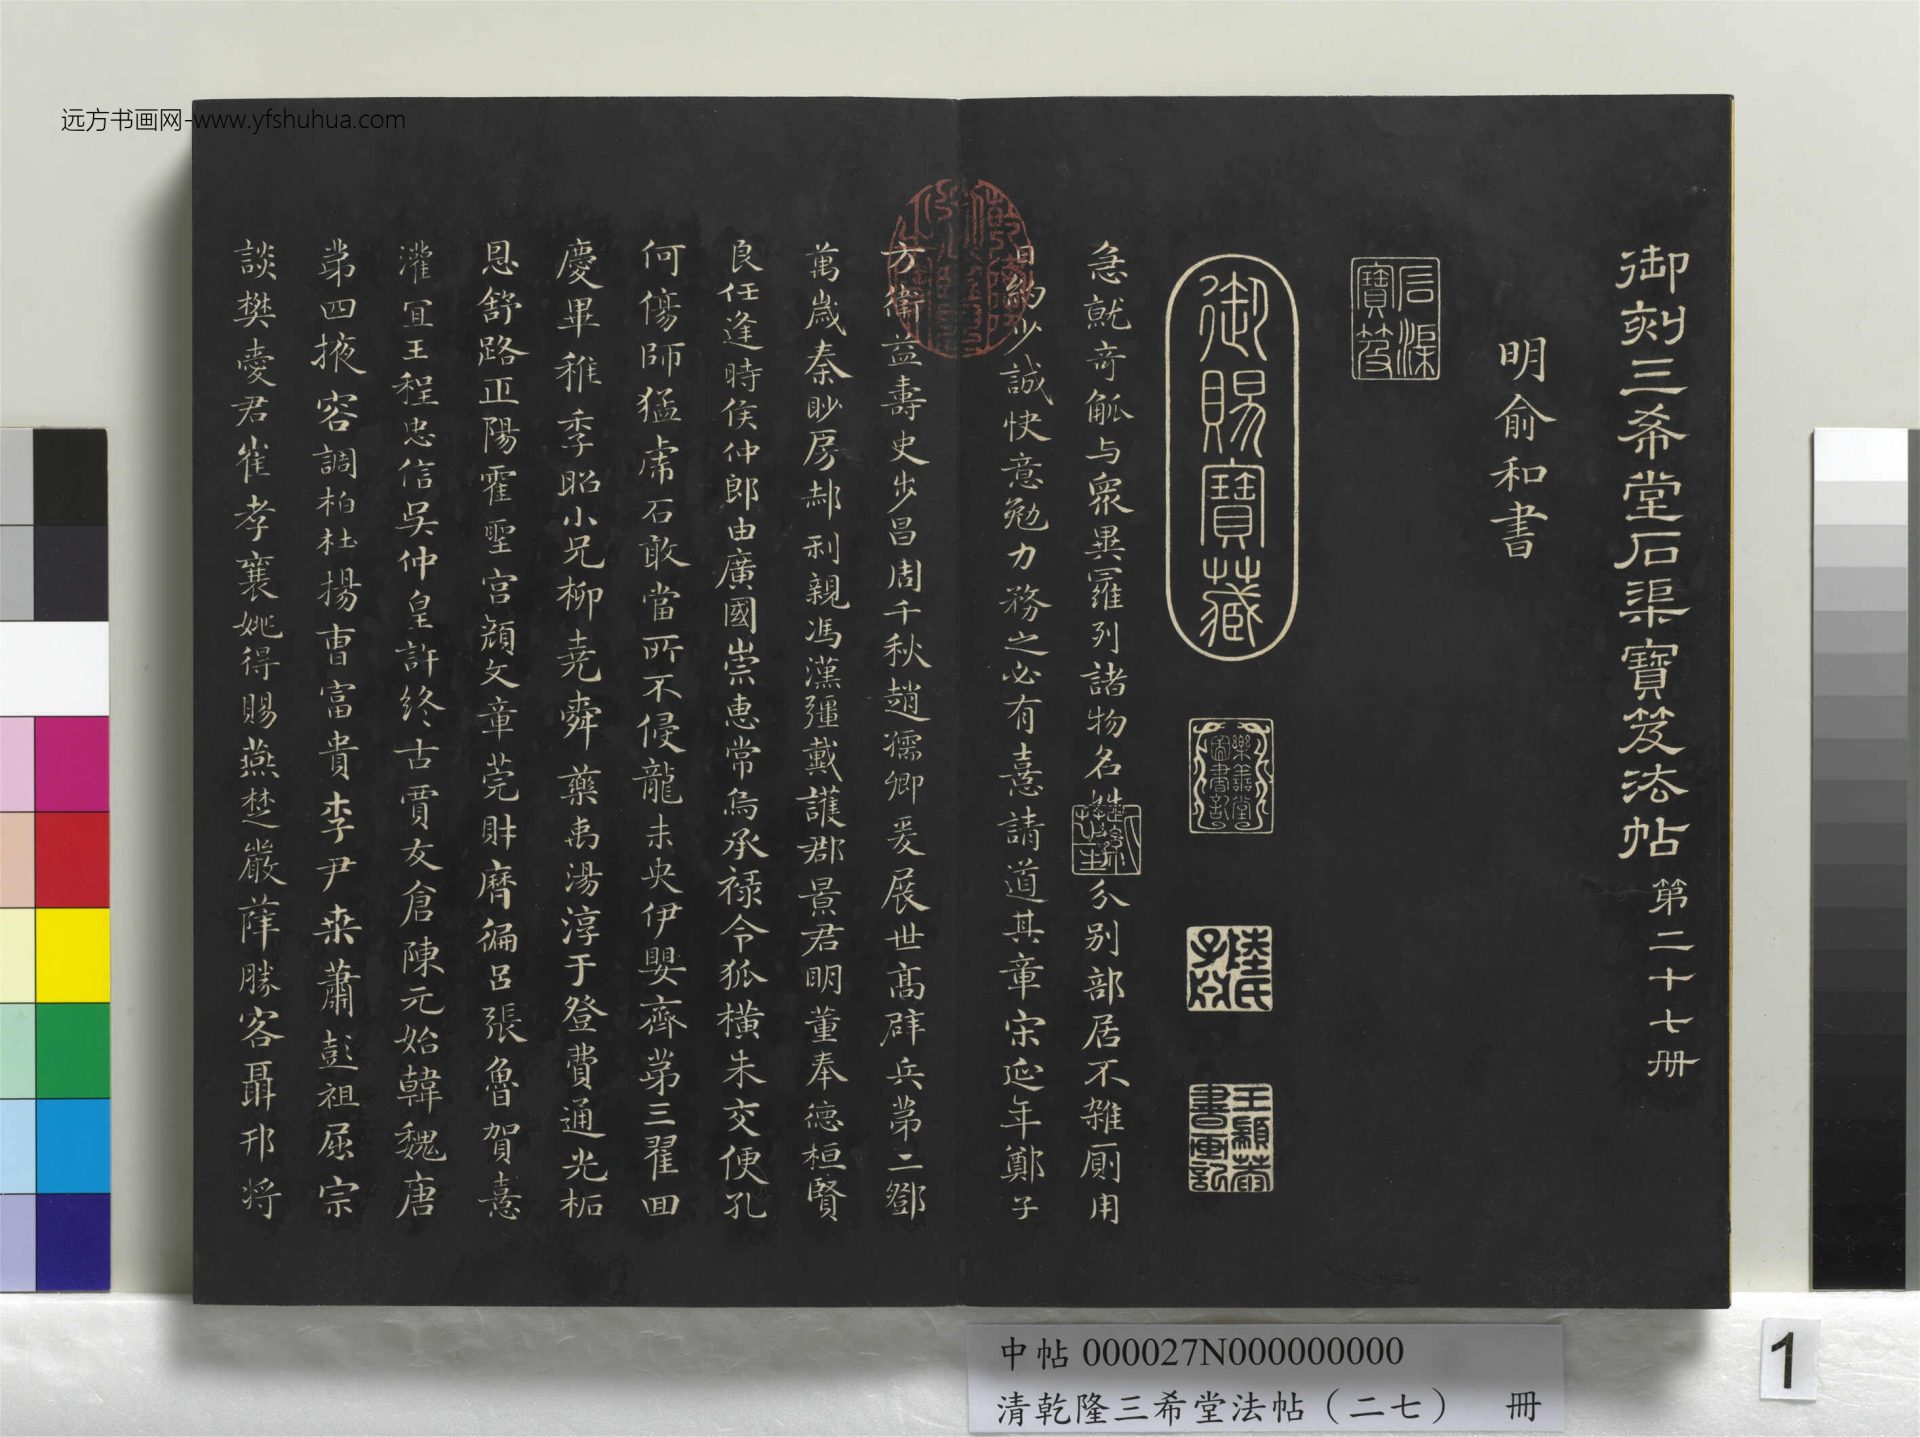 远方书画网-www.yfshuhua.com
御刻三希堂石渠寶笈法帖 第二十七册
明俞和書
石渠寶笈
御賜寶藏
樂善堂圖書記
陸氏子
王顯 書畫記
急就奇觚与眾異羅列諸物名姓分别部居不雜厠用
日約少誠快意勉力務之必有憙請道其章宋延年鄭子
方衛益壽史步昌周千秋趙孺卿爰展世髙辟兵苐二鄧
萬歲秦眇房郝利親馮漢彊戴護郡景君明董奉德桓賢
良任逢時侯仲郎由廣國崇恵常烏承禄令狐橫朱交便孔
何傷師猛虎石敢當所不侵龍未央伊嬰齊苐三翟回
慶畢稚季昭小兄柳堯舜藥禹湯淳于登費通光柘
恩舒路正陽霍聖宫顔文章莞財曆徧吕張魯賀憙
灌宜王程忠信吳仲皇許终古賈友倉陳元始韓魏唐
苐四掖容調柏杜揚曹富貴李尹桒蕭彭祖屈宗
談樊愛君崔孝襄姚得賜燕楚嚴薛勝客聶邗将
中帖 000027N000000000
清乾隆三希堂法帖（二七） 冊
1